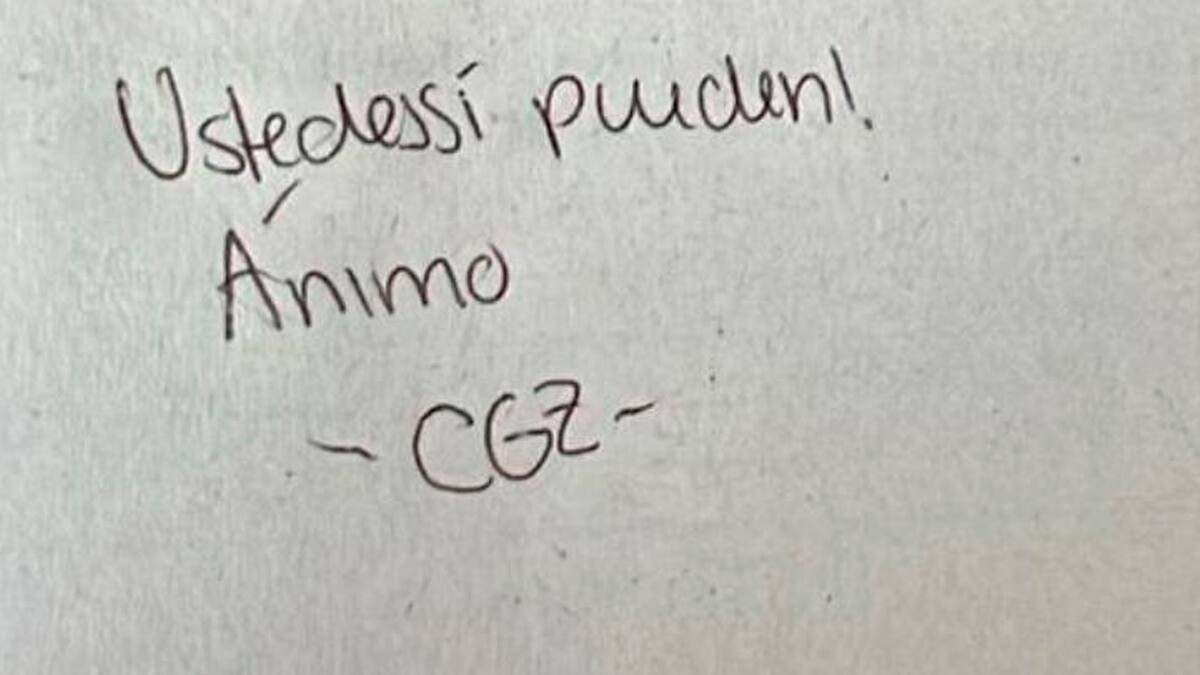 Ustedes sí pueden!
Ánimo
- CGZ -